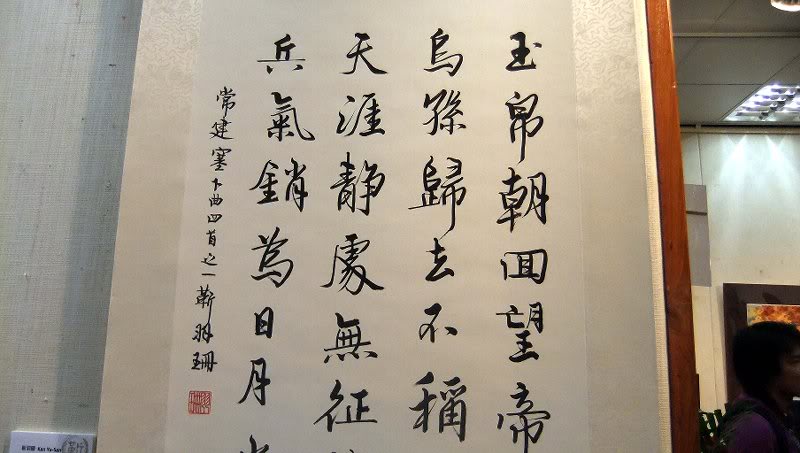 玉帛朝回望帝
烏孫歸去不稱
天涯静處無征
兵氣銷為日月
常建塞下曲四首之一靳羽珊